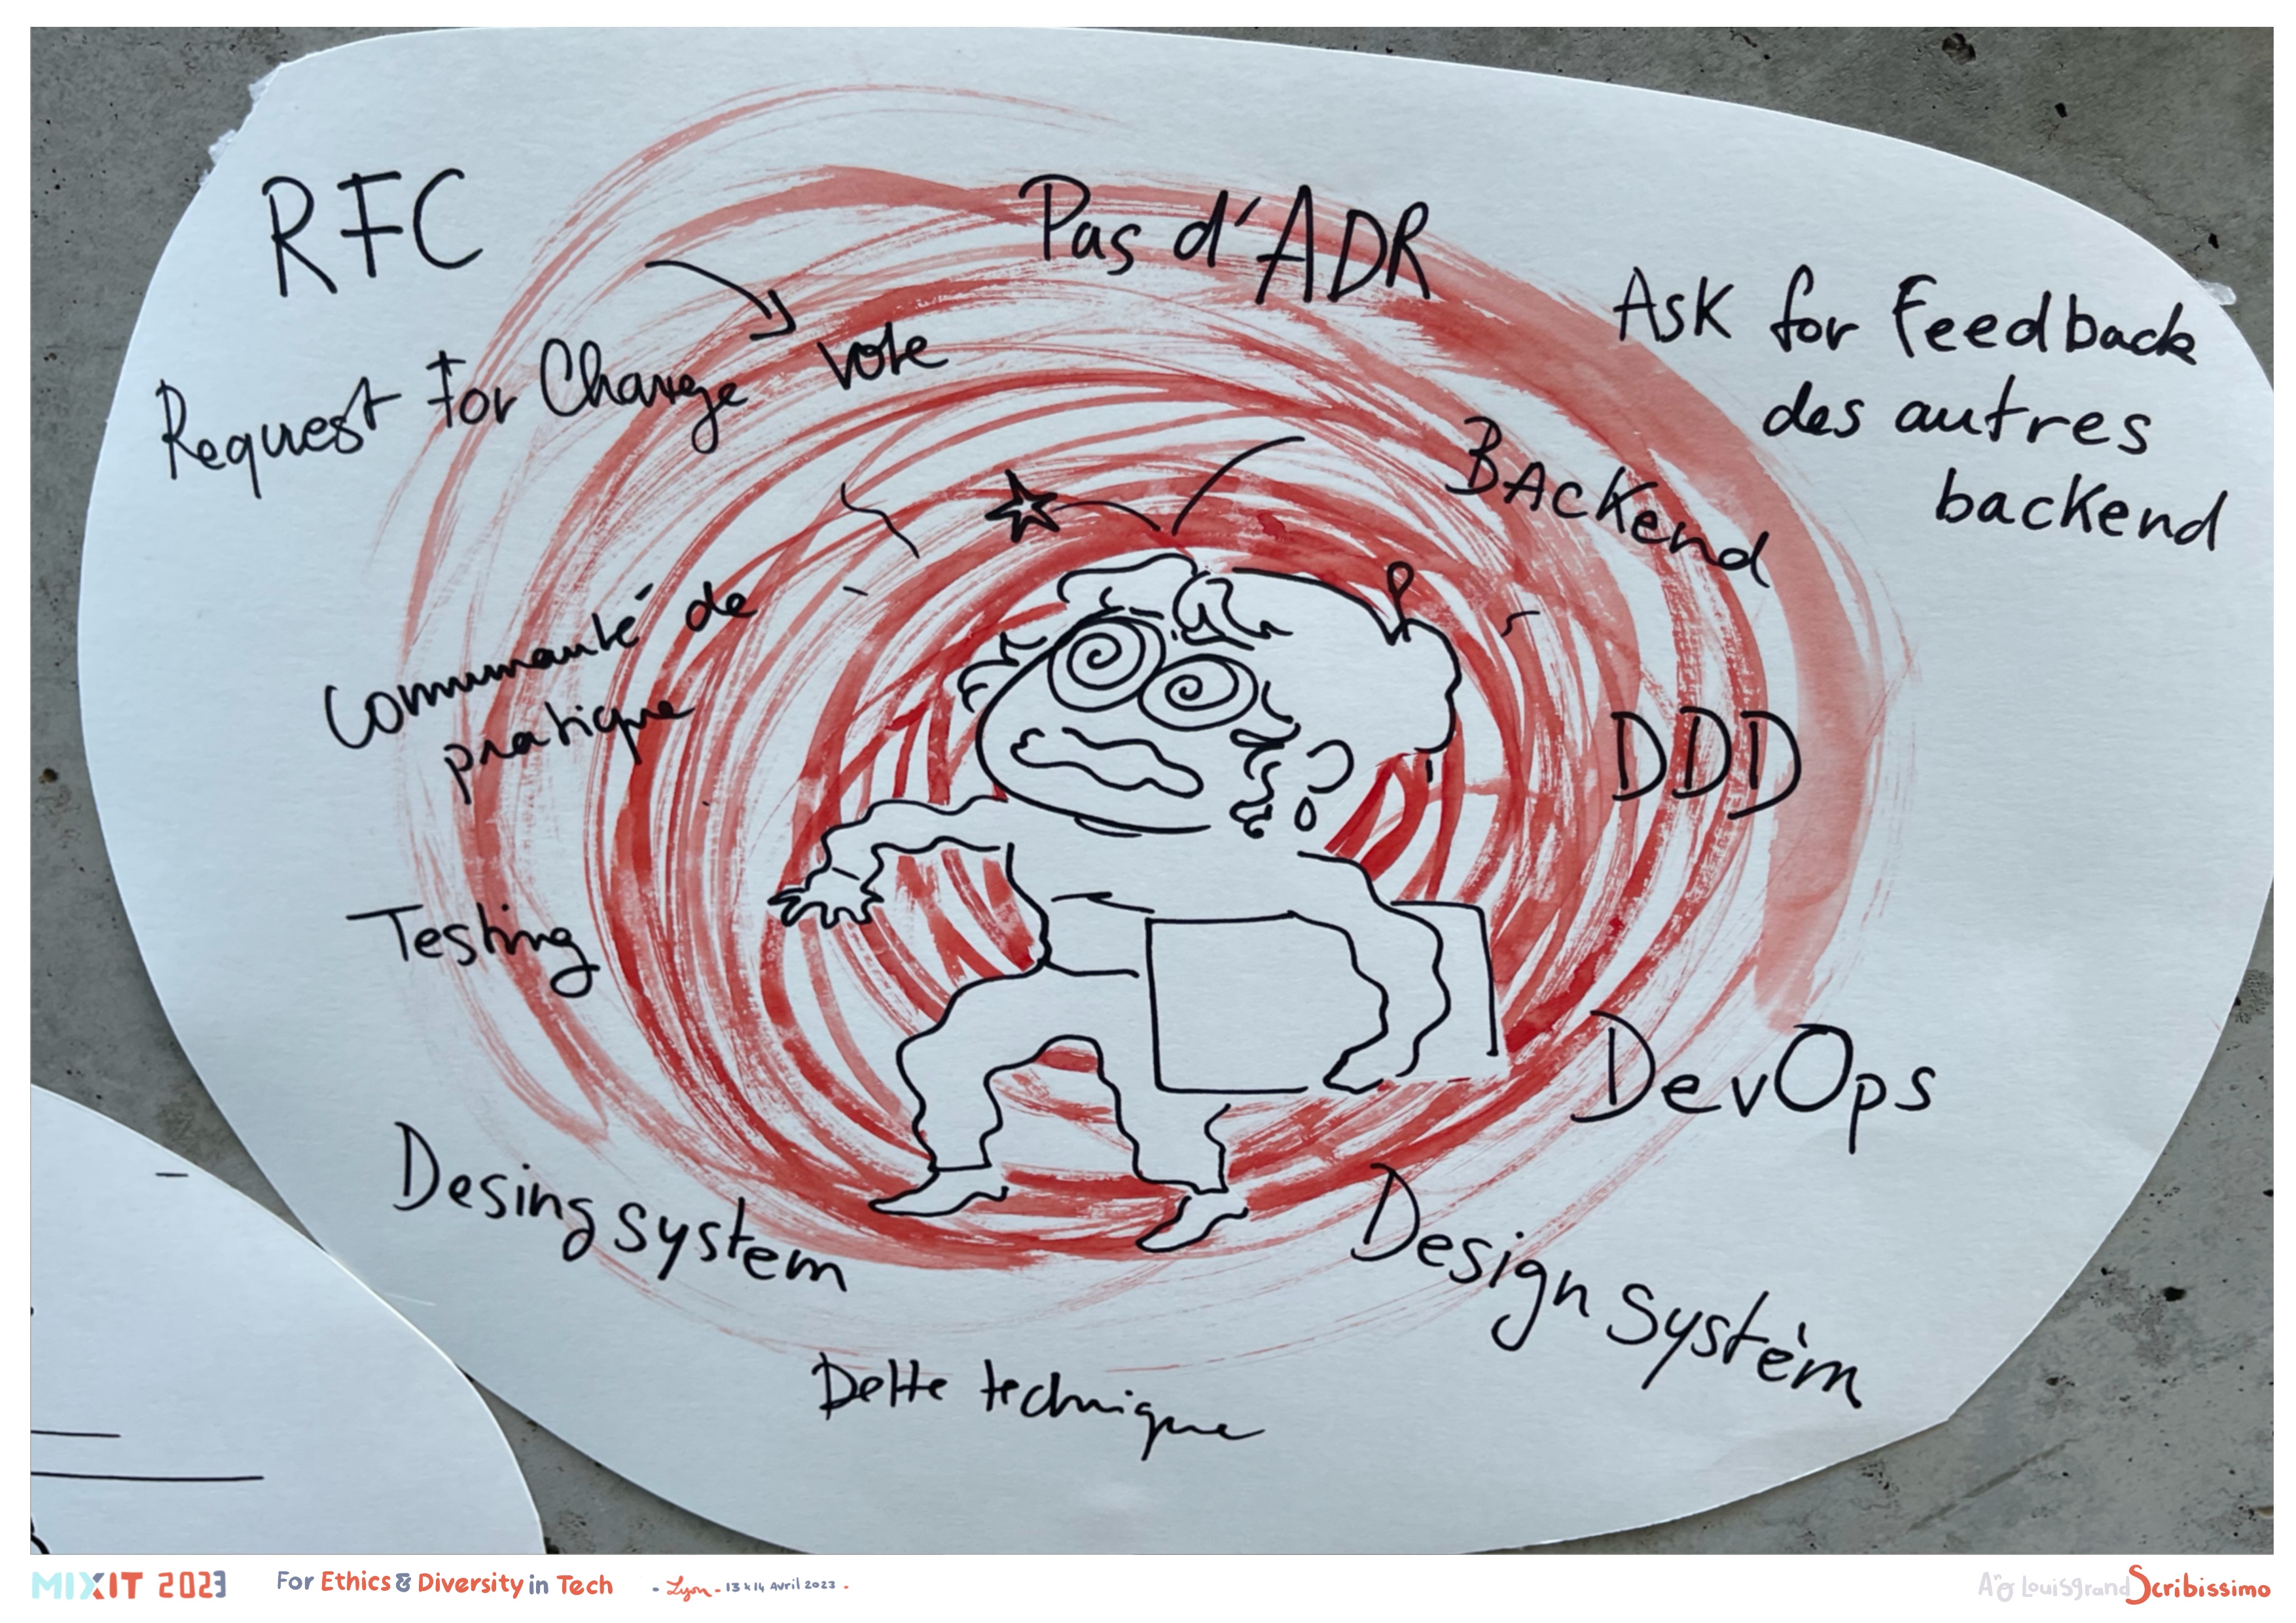 RFC
Pas d'ADR
Ask for Feedback
des autres
backend
Request For Change
vote
BACKend
Communauté de
pratique
DDD
Testing
DevOps
Desing system
Design systèm
Dette technique
MIXIT 2023
For Ethics & Diversity in Tech
- Lyon - 13 & 14 Avril 2023 -
Louisgrand Scribissimo